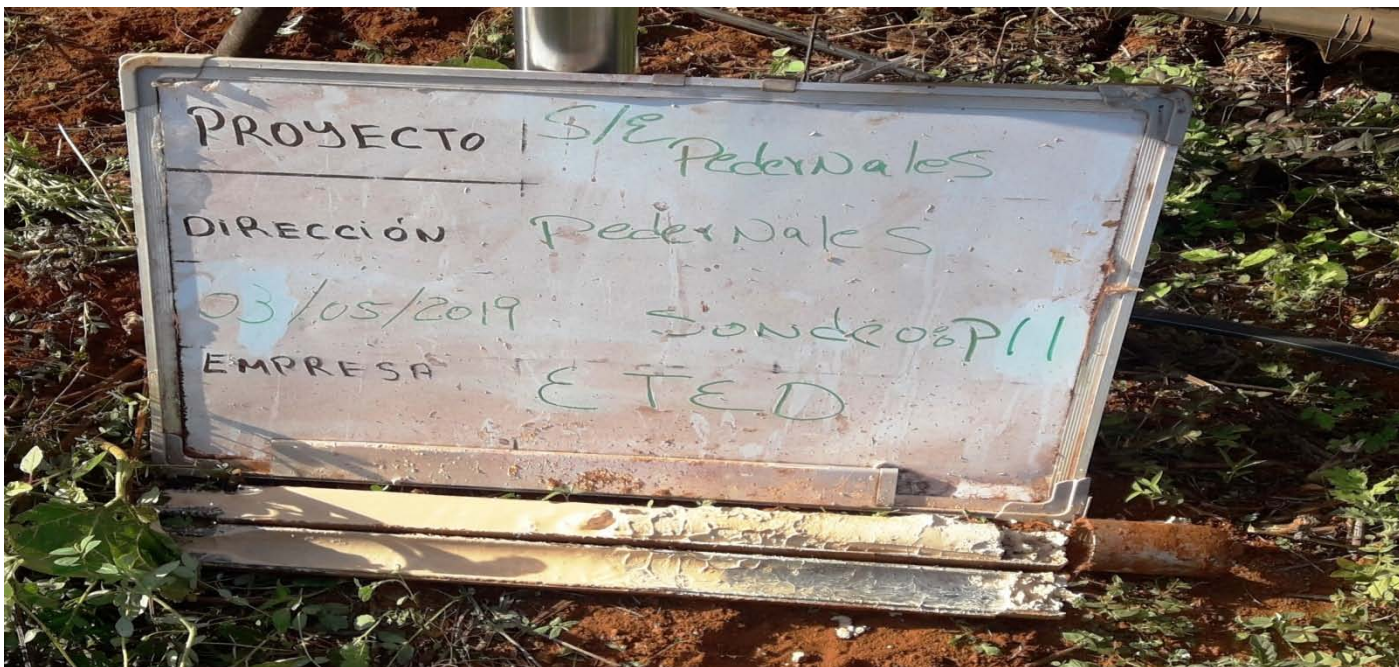 PROYECTO S/E Pedernales
DIRECCIÓN Pedernales
03/05/2019 Sondeo:P11
EMPRESA ETED